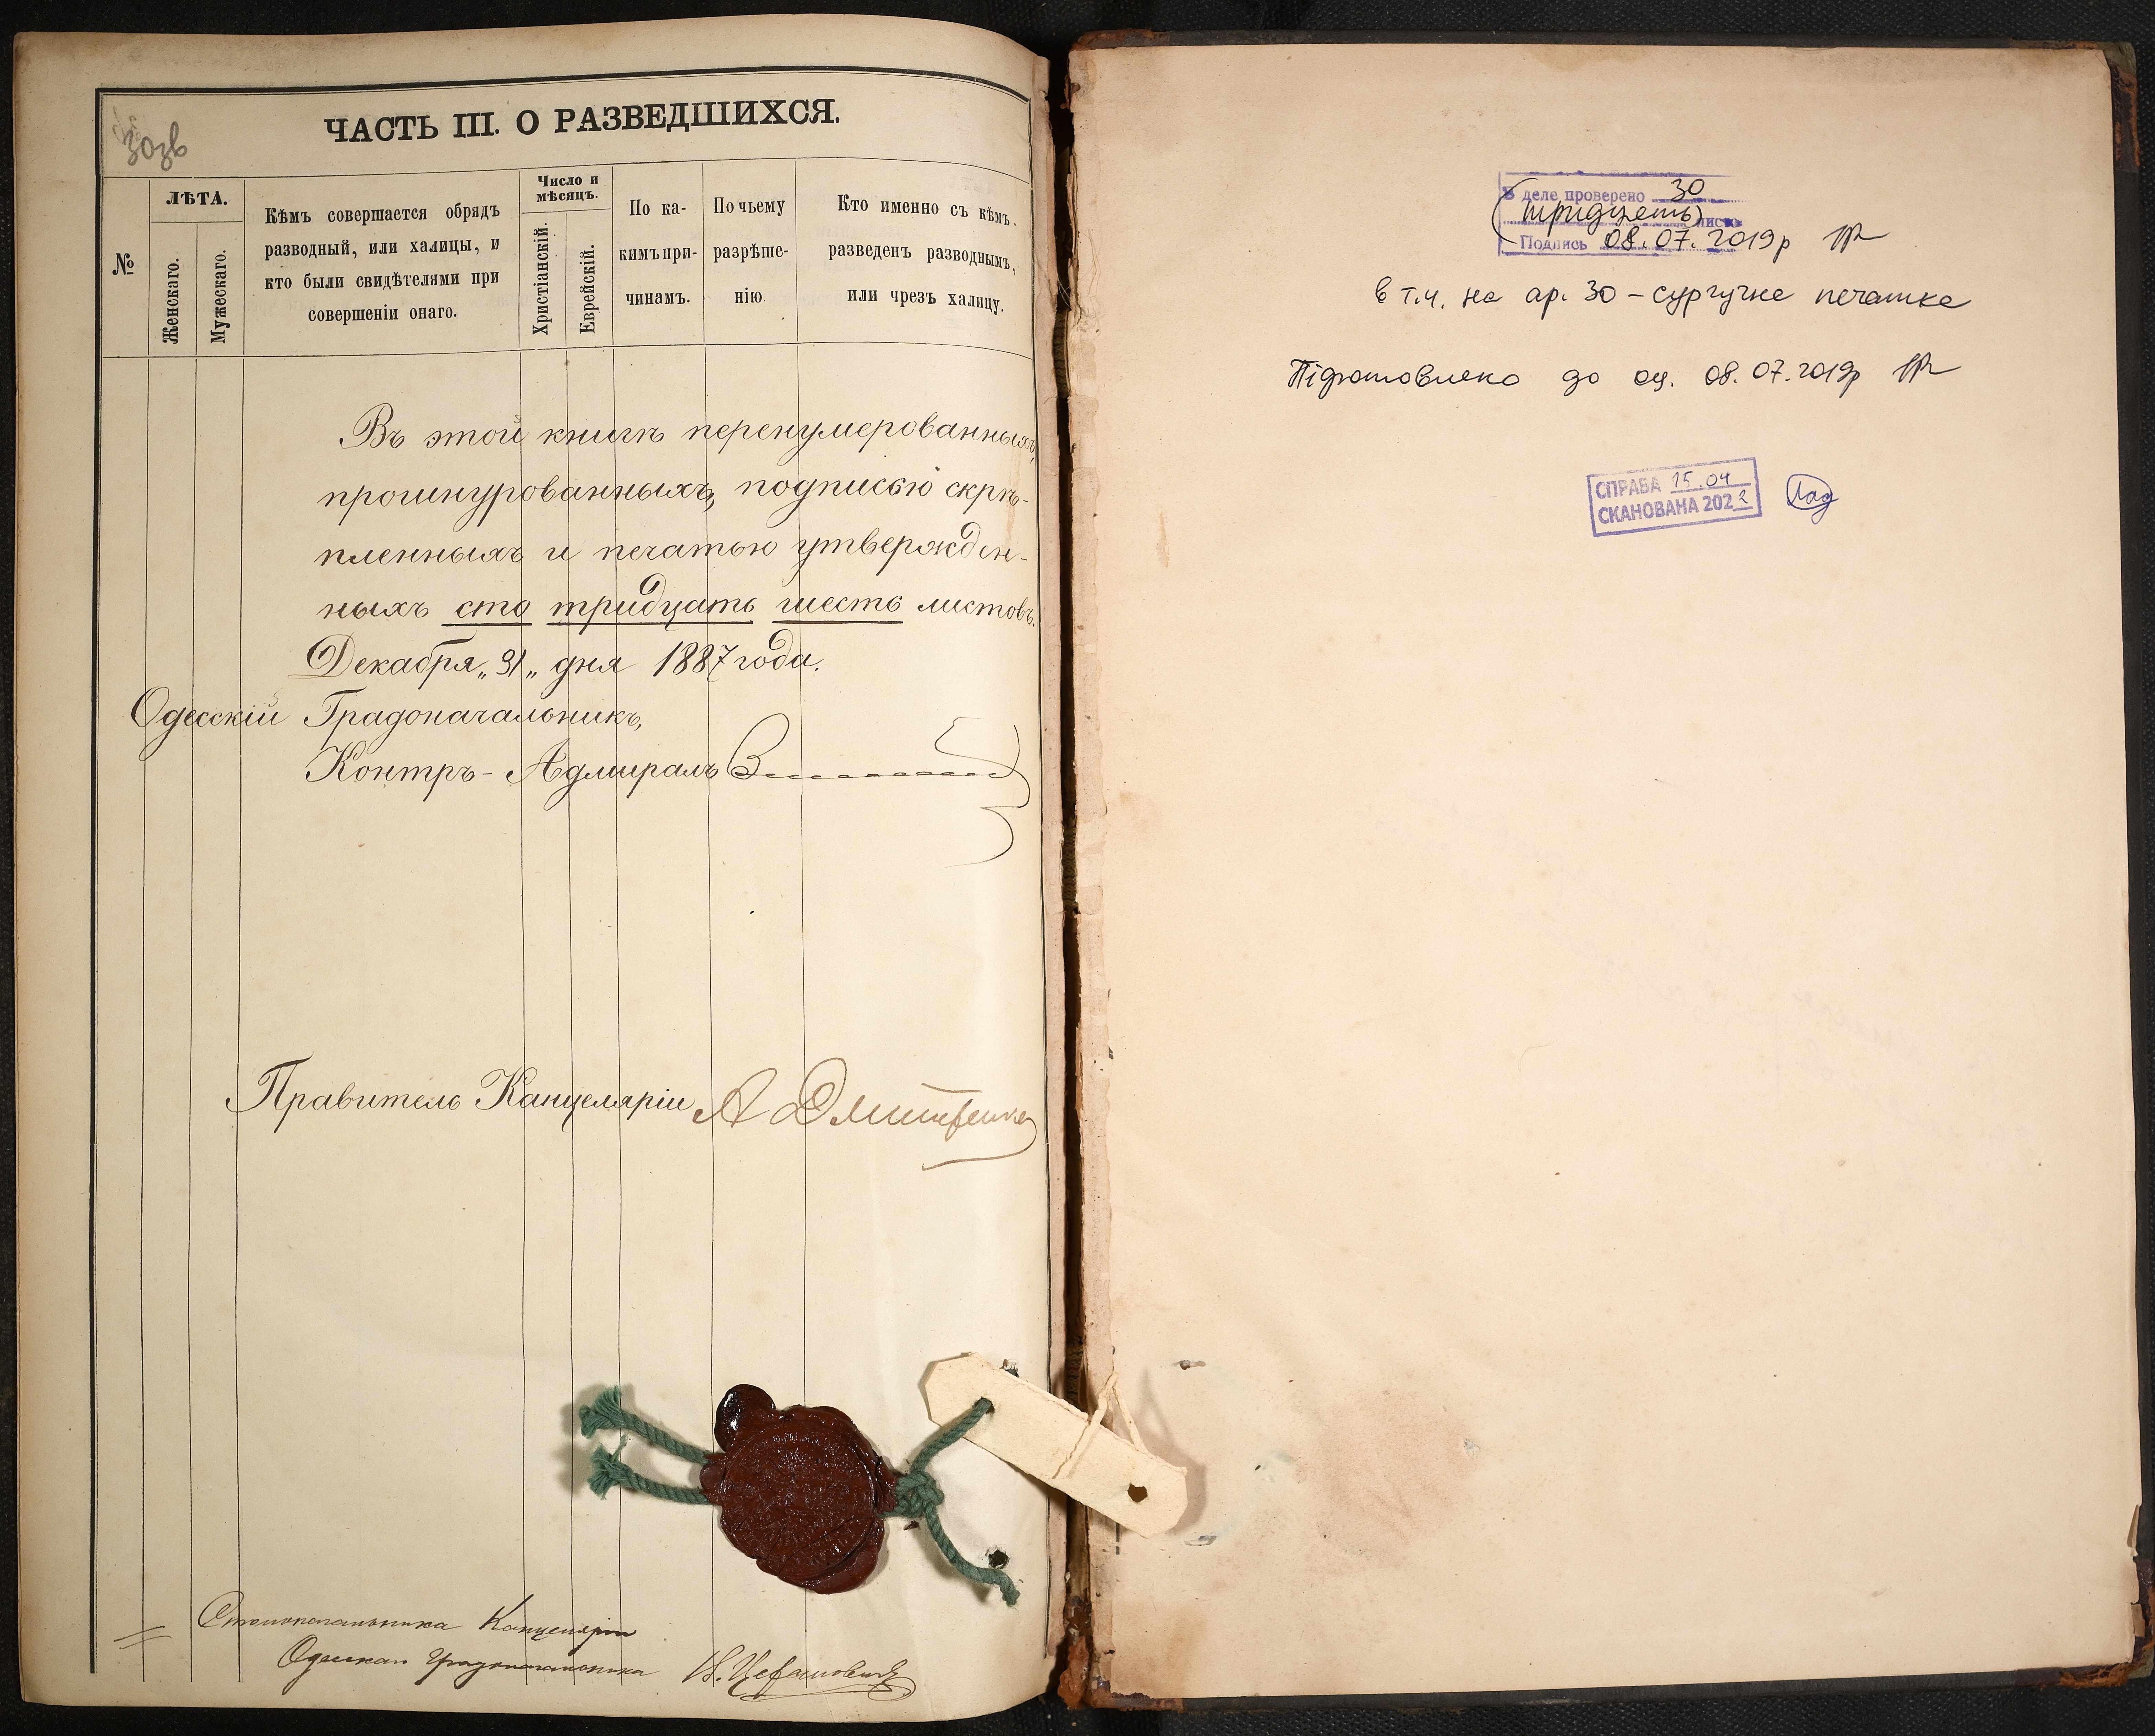 30зв
ЧАСТЬ III. О РАЗВЕДШИХСЯ.
№
ЛѢТА.
Женскаго.
Мужескаго.
Кѣмъ совершается обрядъ
разводный, или халицы, и
кто были свидѣтелями при
совершеніи онаго.
Число и
мѣсяцъ.
Христіанскій.
Еврейскій.
По ка-
кимъ при-
чинамъ.
По чьему
разрѣше-
нію
Кто именно съ кѣмъ
разведенъ разводнымъ,
или чрезъ халицу.
Въ этой книгѣ перенумерованныхъ,
прошнурованныхъ, подписью скрѣ-
пленныхъ и печатью утвержден-
ныхъ сто тридцать шесть листовъ.
Декабря „31„ дня 1887 года.
Одесскій Градоначальникъ,
Контръ-Адмиралъ
Правитель Канцеляріи А Дмитренко
Столоначальника Канцеляріи
Одесскаго Градоначальника
В деле проверено 30
(тридцять) листов
Подпись 08.07.2019р
в т.ч. на ар. 30 – сургучна печатка
Підготовлено до оц. 08.07.2019р
СПРАВА 15.04
СКАНОВАНА 2022